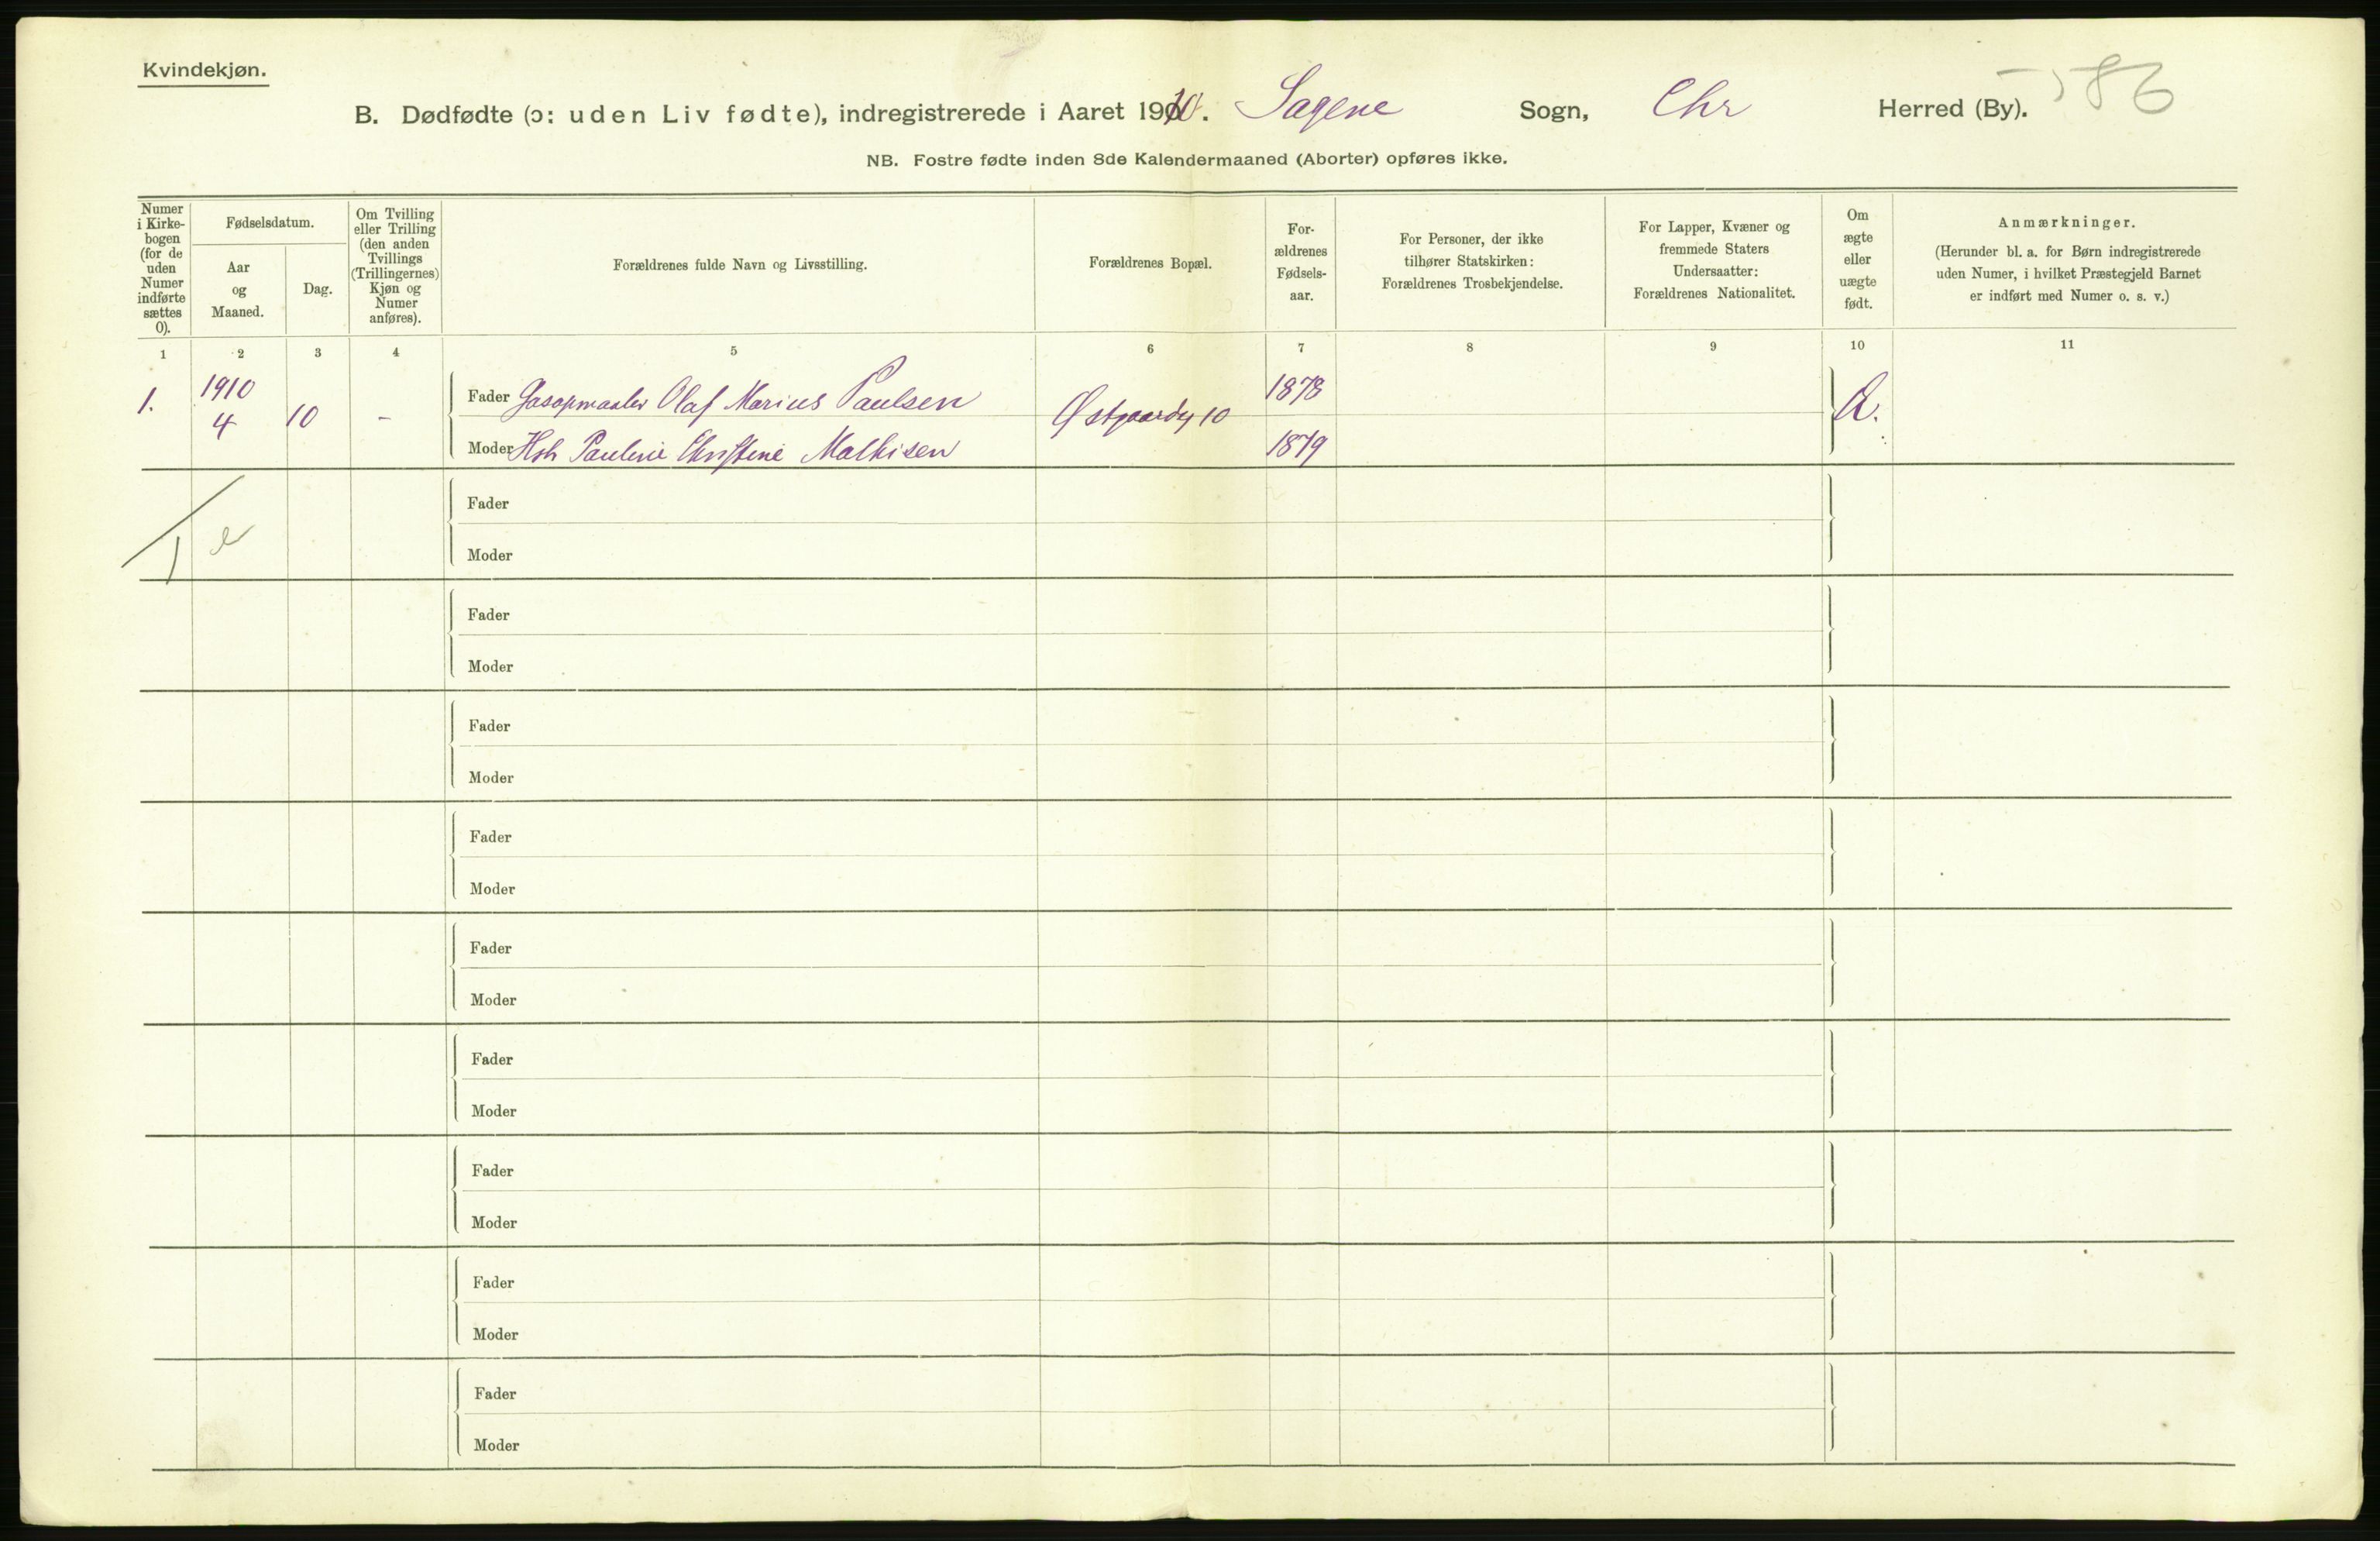 Kvindekjøn.
586
B. Dødfødte (ɔ: uden Liv fødte), indregistrerede i Aaret 1910. Sagene Sogn, Chr Herred (By).
NB. Fostre fødte inden 8de Kalendermaaned (Aborter) opføres ikke.
Numer
i Kirke-
bogen
(for de
uden
Numer
indførte
sættes
0).
Fødselsdatum.
Aar
og
Maaned.
Dag.
Om Tvilling
eller Trilling
(den anden
Tvillings
(Trillingernes)
Kjøn og
Numer
anføres).
Forældrenes fulde Navn og Livsstilling.
Forældrenes Bopæl.
For-
ældrenes
Fødsels-
aar.
For Personer, der ikke
tilhører Statskirken:
Forældrenes Trosbekjendelse.
For Lapper, Kvæner og
fremmede Staters
Undersaatter:
Forældrenes Nationalitet.
Om
ægte
eller
uægte
født.
Anmærkninger.
(Herunder bl. a. for Børn indregistrerede
uden Numer, i hvilket Præstegjeld Barnet
er indført med Numer o. s. v.)
1 2 3 4 5 6 7 8 9 10 11
1. 1910
4 10 -
Fader Gasopmaaler Olaf Marius Paulsen
Moder Hstr Pauline Christine Mathisen
Østgaardsg 10
1878
1879
Æ.
Fader
Moder
Fader
Moder
Fader
Moder
Fader
Moder
Fader
Moder
Fader
Moder
Fader
Moder
Fader
Moder
Fader
Moder